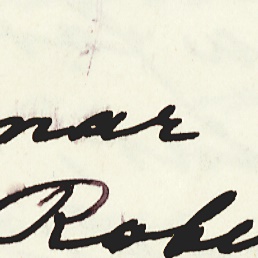 nar
Robe